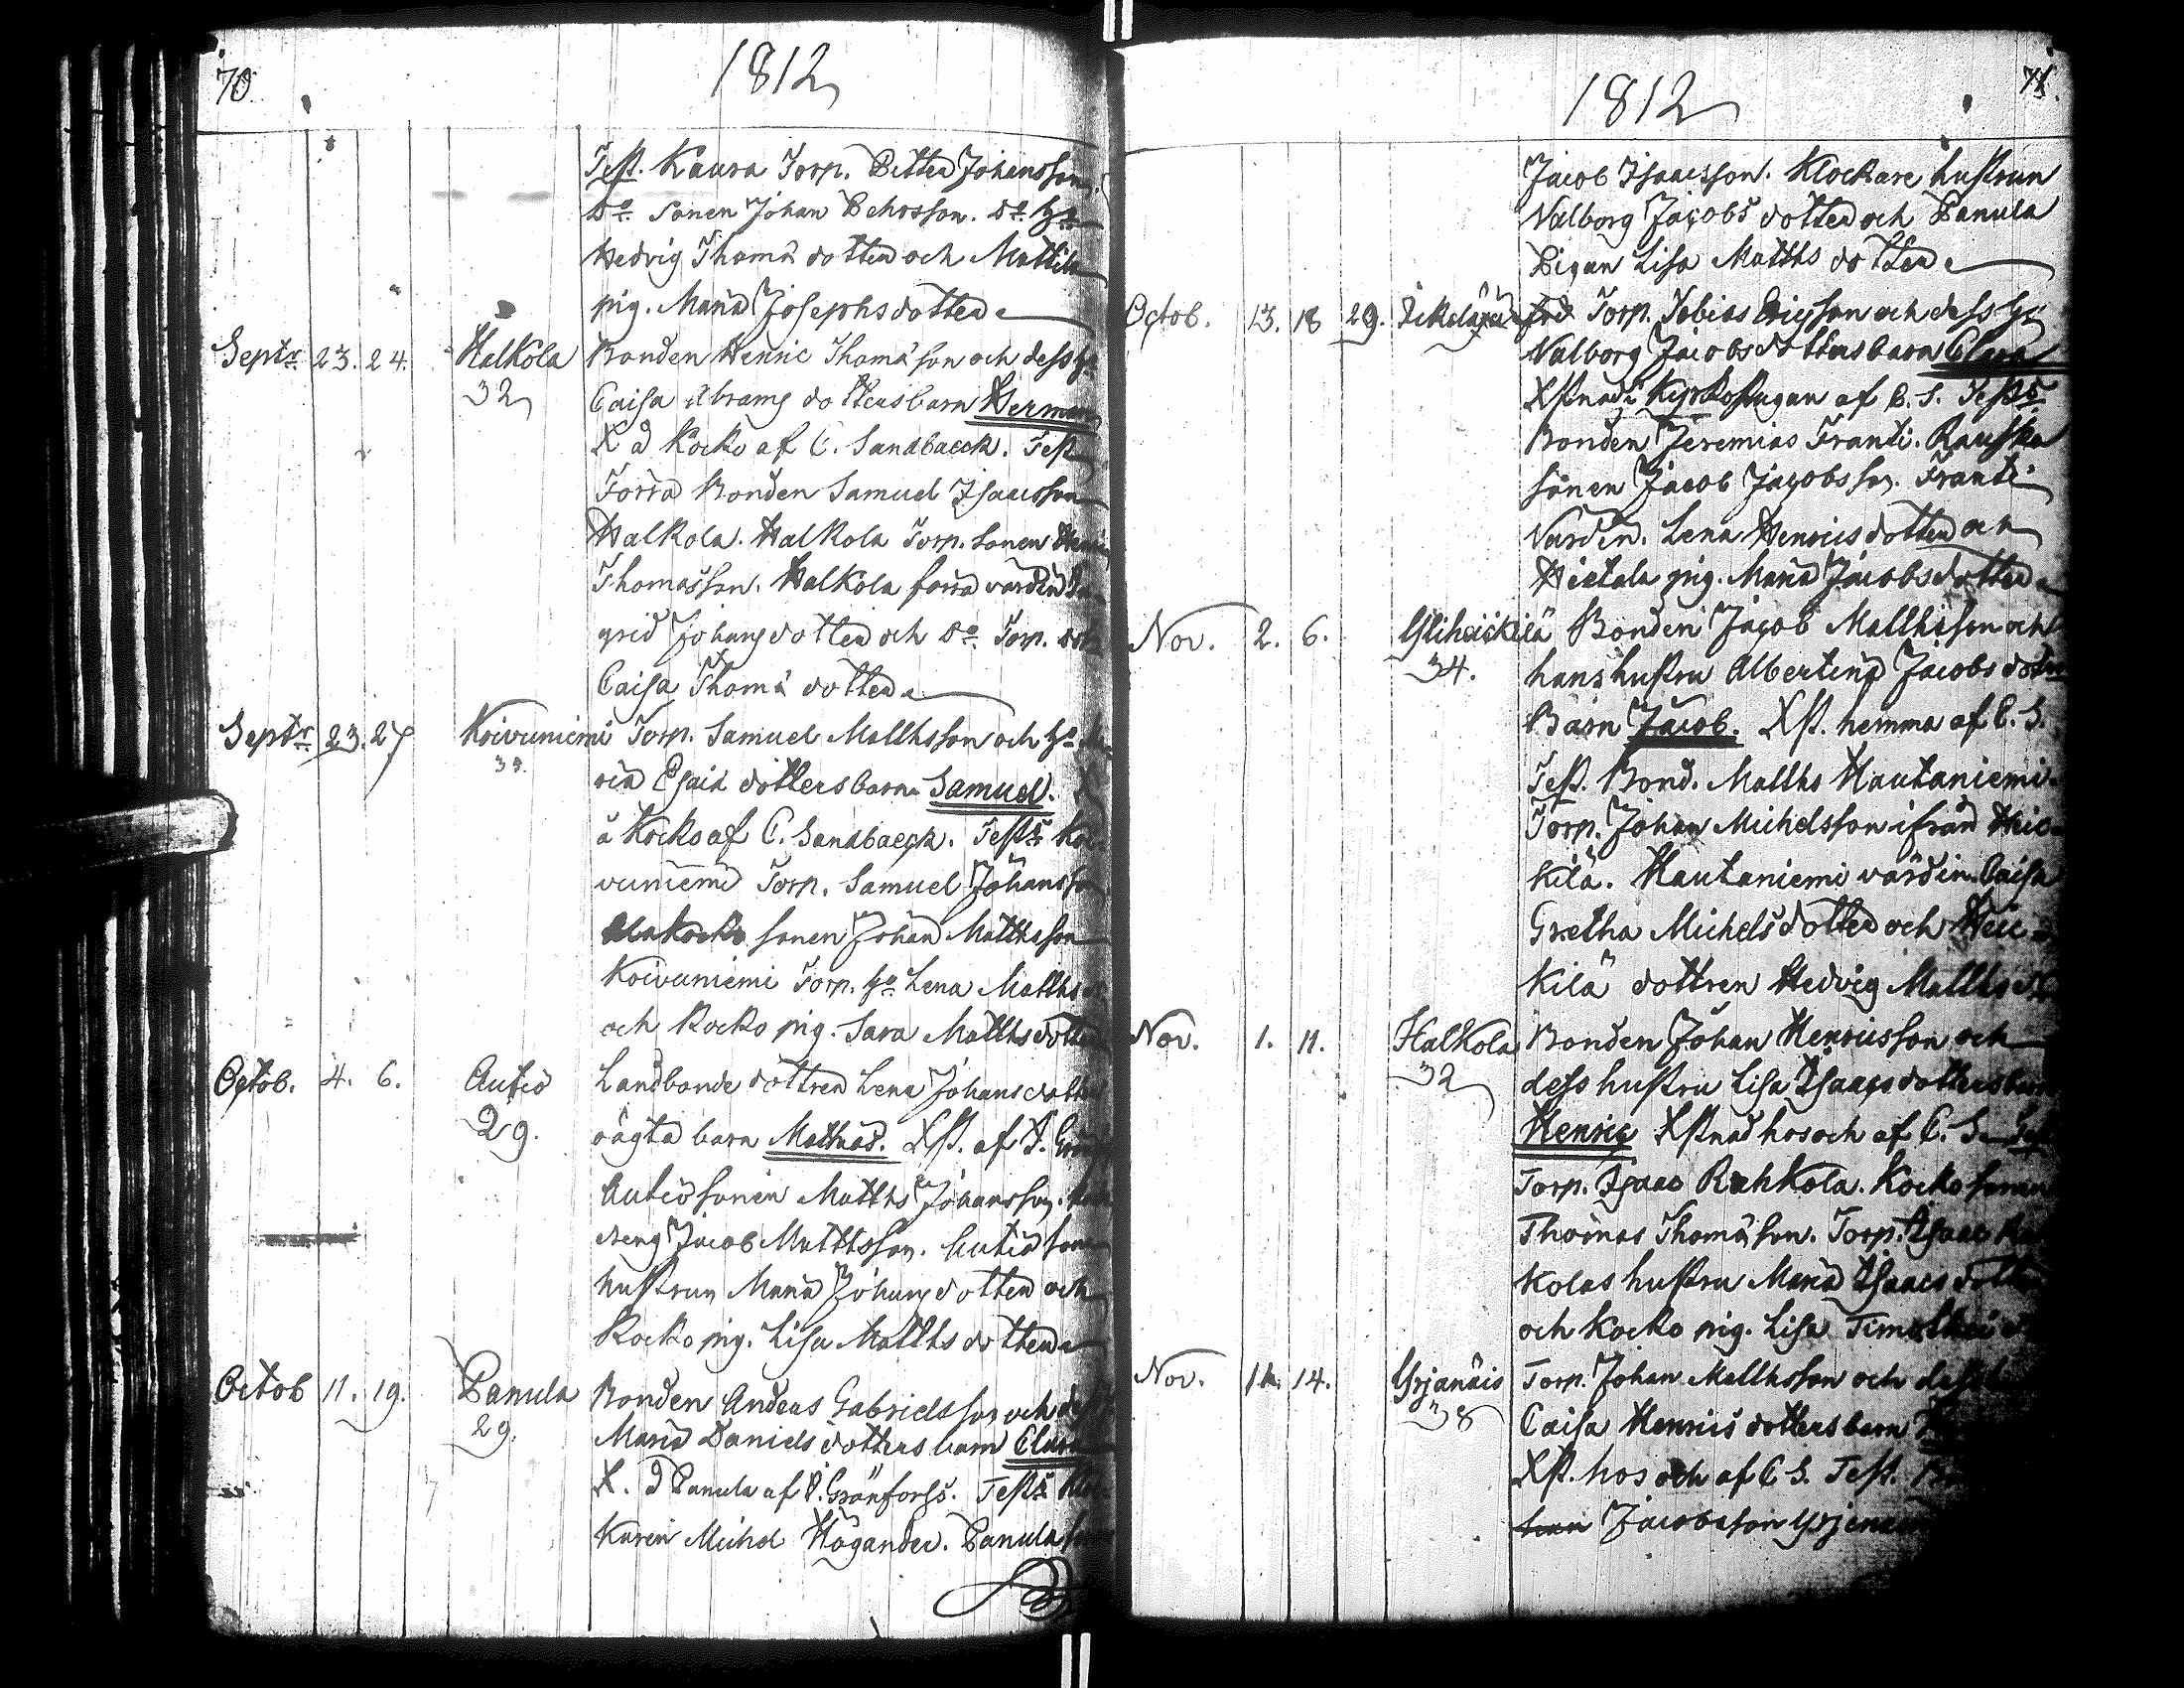 70
1812
Test. Kaura Torp. Petter Johansson,
Do. sonen Johan Pehrsson. Do. h:o
Hedvig Thomä dotter och Mattila
pig. Maria Josephsdotter
Septr. 23. 24. Halkola Bonden Henric Thomä son och dess h:o
32 Caisa Abrams dotters barn Herman
X å Kocko af C. Sandbaeck. Test
Förra Bonden Samuel Isaacsson
Halkola. Halkola Torp. sonen
Thomasson. Halkola förra värdin
grid Johansdotter och Do. Torp.
Caisa Thomä dotter
Septr. 23. 27 Koivuniemi Torp. Samuel Matthsson och h:o
ria Esaiä dotters barn Samuel.
å Kocko af C. Sandbaeck. Test:s Koi-
vuniemi Torp. Samuel Johansson
Alakocko sonen Johan Matthsson
Koivuniemi Torp. h:o Lena Matths
och Kocko pig. Sara Matthsdotter
Octob. 4. 6. Autio Landbonde dottren Lena Johansdotter
29. oägta barn Mathias. Xst. af
Autio sonen Matths Johansson.
dreng Jacob Matthsson. Autio son
hustrun Maria Johansdotter och
Kocko pig. Lisa Matths dotter
Octob 11. 19. Panula Bonden Anders Gabrielsson och
29. Maria Daniels dotters barn Clara
X. å Panula af P. Grönforss. Test:s
karen Michel Högander. Panula
71.
1812
Jacob Isaacsson. Klockare hustrun
Valborg Jacobs dotter och Panula
Pigan Lisa Matths dotter
Octob. 13. 18 29. Torp. Tobias Ericsson och dess h:o
Valborg Jacobsdotters barn Clara
Xstnad i Kyrkostugan af C. S. Test:s
Bonden Jeremias Franti. Rauska
sonen Jacob Jacobsson. Franti
Värdin. Lena Henricsdotter och
Hietala pig. Maria Jacobsdotter
Nov. 2. 6. Ylihäickilä Bonden Jacob Matthsson och
34. hans hustru Albertina Jacobs dotters
Barn Jacob. Xst. hemma af C. S.
Test. Bond. Matths Hautaniemi.
Torp. Johan Michelsson ifrån Heic-
kilä. Hautaniemi värdin. Caisa
Gretha Michelsdotter och Heic-
kilä dottren Hedvig Matths
Nov. 1. 11. Halkola Bonden Johan Henricsson och
32 dess hustru Lisa Isaacs dotters barn
Henric Xstnad hos och af C. S. Test
Torp. Isaac Rahkola. Kocko sonen
Thomas Thomä son. Torp. Isaac Rah
kolas hustru Maria Isaacs dotter
och Kocko pig. Lisa Timothei
Nov. 14. Yrjänäis Torp. Johan Matthsson och dess
38 Caisa Henrics dotters barn
Xst. hos och af C S. Test.
Jacobsson